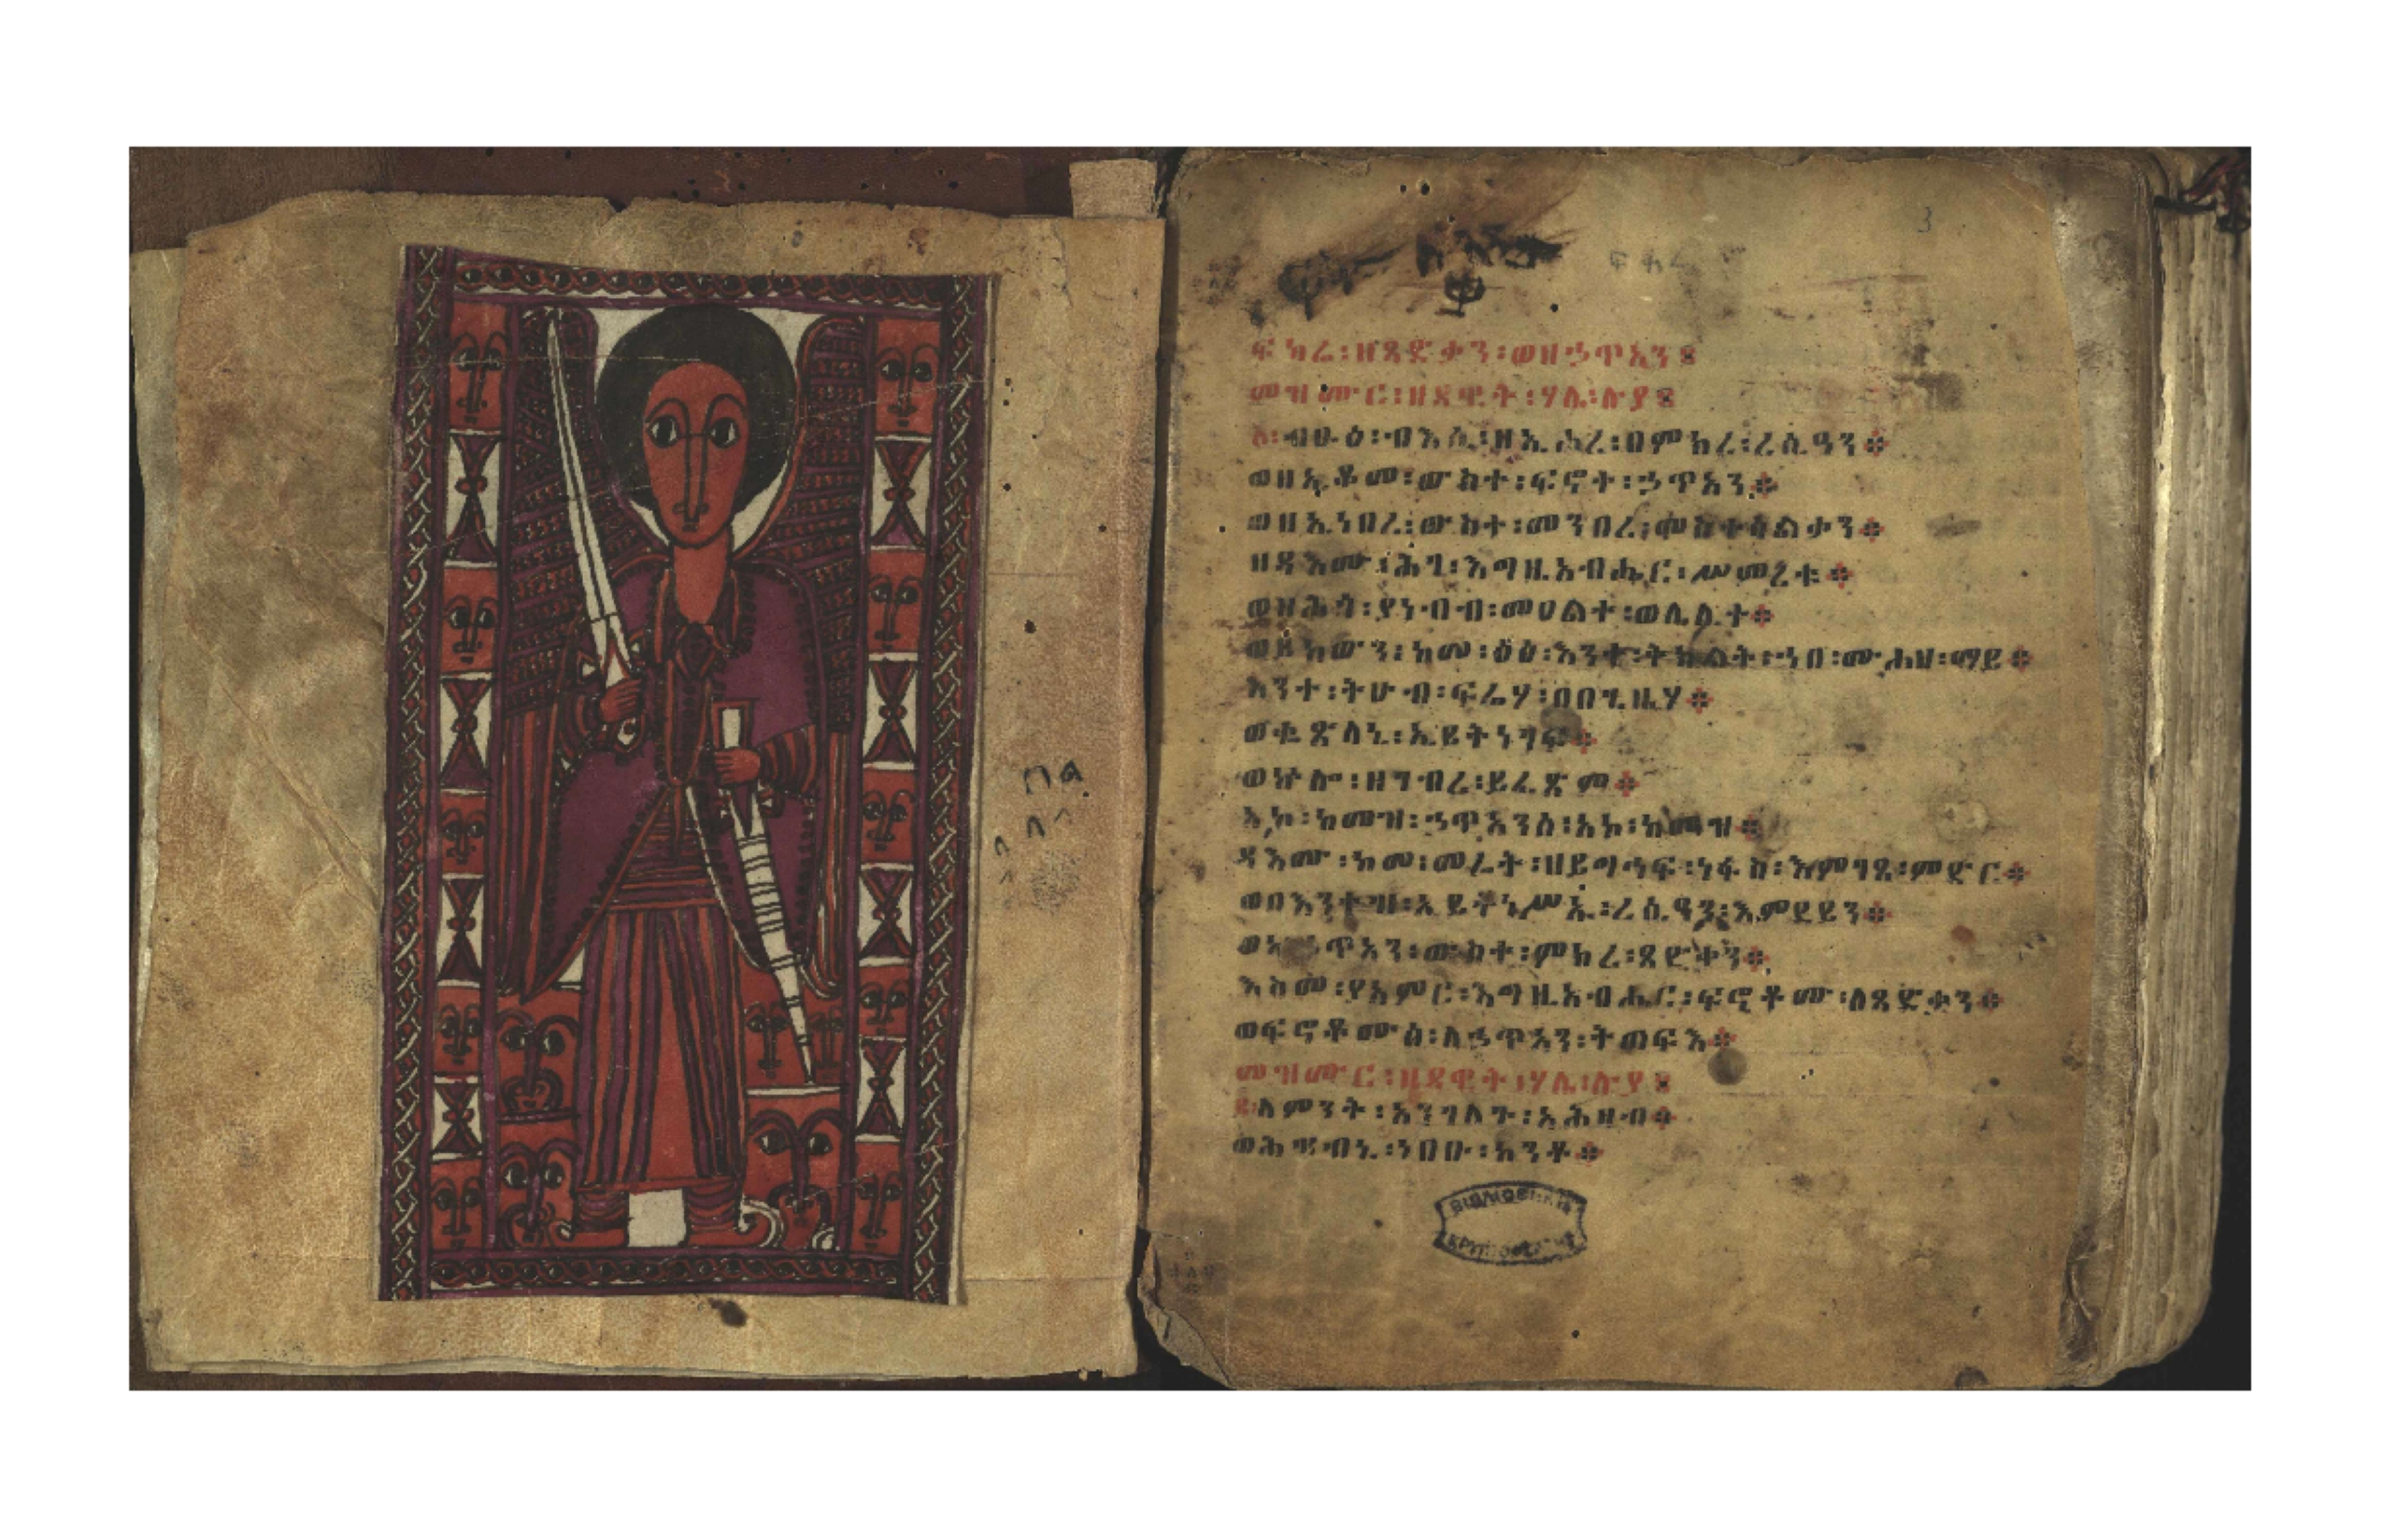 በል
3
ፍካሬ፡ዘጻድቃን፡ወዘኃጥአን፨
መዝሙር፡ዘዳዊት፡ሃሌ፡ሉያ፨
ብፁዕ፡ብእሲ፡ዘኢሖረ፡በምክረ፡ረሲዓን፨
ወዘኢቆመ፡ውስተ፡ፍኖተ፡ኃጥአን፨
ወዘኢነበረ፡ውስተ፡መንበረ፡መስተሳልቃን፨
ዘዳእሙ፡ሕገ፡እግዚአብሔር፡ሥምረቱ፨
ወዘሕጎ፡ያነብብ፡መዐልተ፡ወሌሊተ፨
ወይከውን፡ከመ፡ዕፅ፡እንተ፡ትክልት፡ኀበ፡ሙሐዘ፡ማይ፨
እንተ፡ትሁብ፡ፍሬሃ፡በበጊዜሃ፨
ወቈጽላኒ፡ኢይትነገፍ፨
ወኵሎ፡ዘገብረ፡ይፌጽም፨
አኮ፡ከመዝ፡ኃጥአንሰ፡አኮ፡ከመዝ፨
ዳእሙ፡ከመ፡መሬት፡ዘይግሕፍ፡ነፋስ፡እምገጸ፡ምድር፨
ወበእንተዝ፡ኢይትነሥኡ፡ረሲዓን፡እምደይን፨
ወኢኃጥአን፡ውስተ፡ምክረ፡ጻድቃን፨
እስመ፡ያአምር፡እግዚአብሔር፡ፍኖቶሙ፡ለጻድቃን፨
ወፍኖቶሙሰ፡ለኃጥአን፡ትጠፍእ፨
መዝሙር፡ዘዳዊት፡ሃሌ፡ሉያ፨
ለምንት፡አንገለጉ፡አሕዛብ፨
ወሕዝብኒ፡ነበቡ፡ከንቶ፨